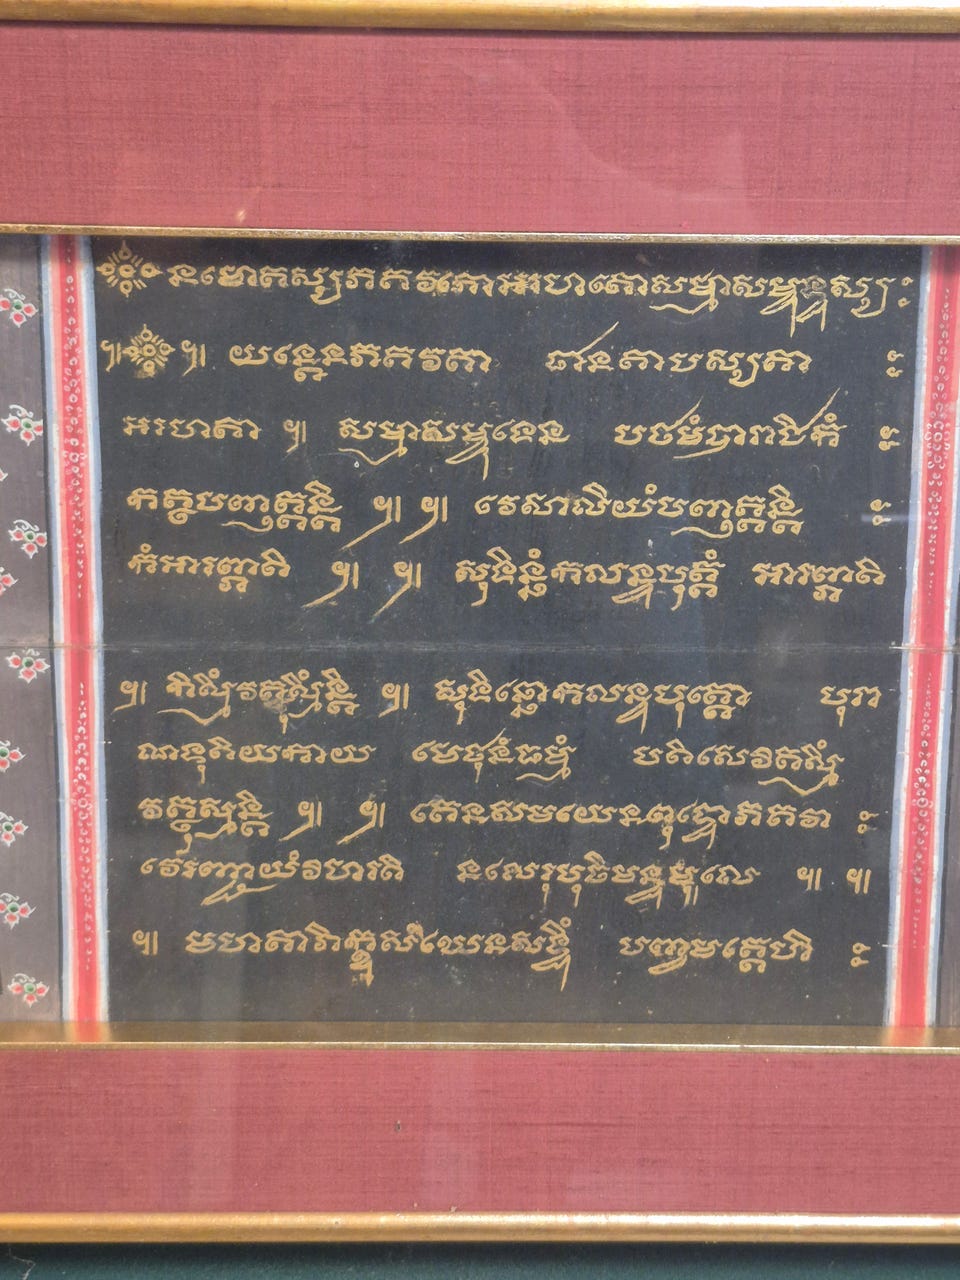 នមោតស្សភគវតោអរហតោសម្មាសម្ពុទ្ធស្ស ៈ
៕ ៕ យន្តេនភគវតា ជានតាបស្សតា ៈ
អរហតា ៕ សម្មាសម្ពុទ្ធេន បឋមំបារាជិកំ ៈ
កត្ថបញ្ញត្តន្តិ ៕ ៕ វេសាលិយំបញ្ញត្តន្តិ ៈ
កំអារព្ភាតិ ៕ ៕ សុទិន្នំកលន្ទបុត្តំ អារព្ភាតិ
៕ កិស្មិំវត្ថុស្មិំន្តិ ៕ សុទិន្នោកលន្ទបុត្តោ បុរា
ណទុតិយកាយ មេថុនំធម្មំ បតិសេវតស្មិំ
វត្ថុស្មិន្តិ ៕ ៕ តេនសមយេនពុទ្ធោភគវា ៈ
វេរញ្ជាយំវិហរតិ នលេរុបុចិមន្ទមូលេ ៕ ៕
៕ មហតាភិក្ខុសំឃេនសទ្ធិំ បញ្ចមត្តេហិ ៈ